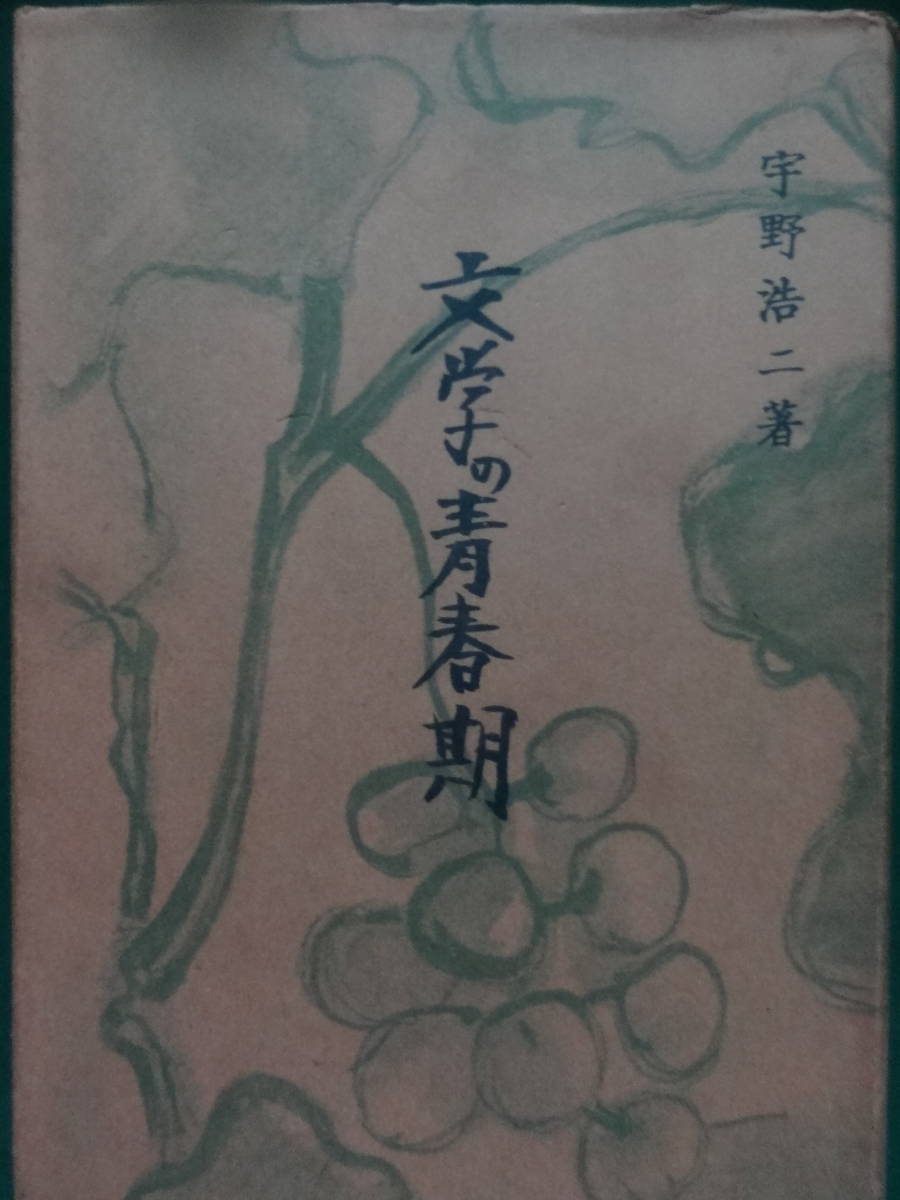 宇野浩二著
文学の青春期